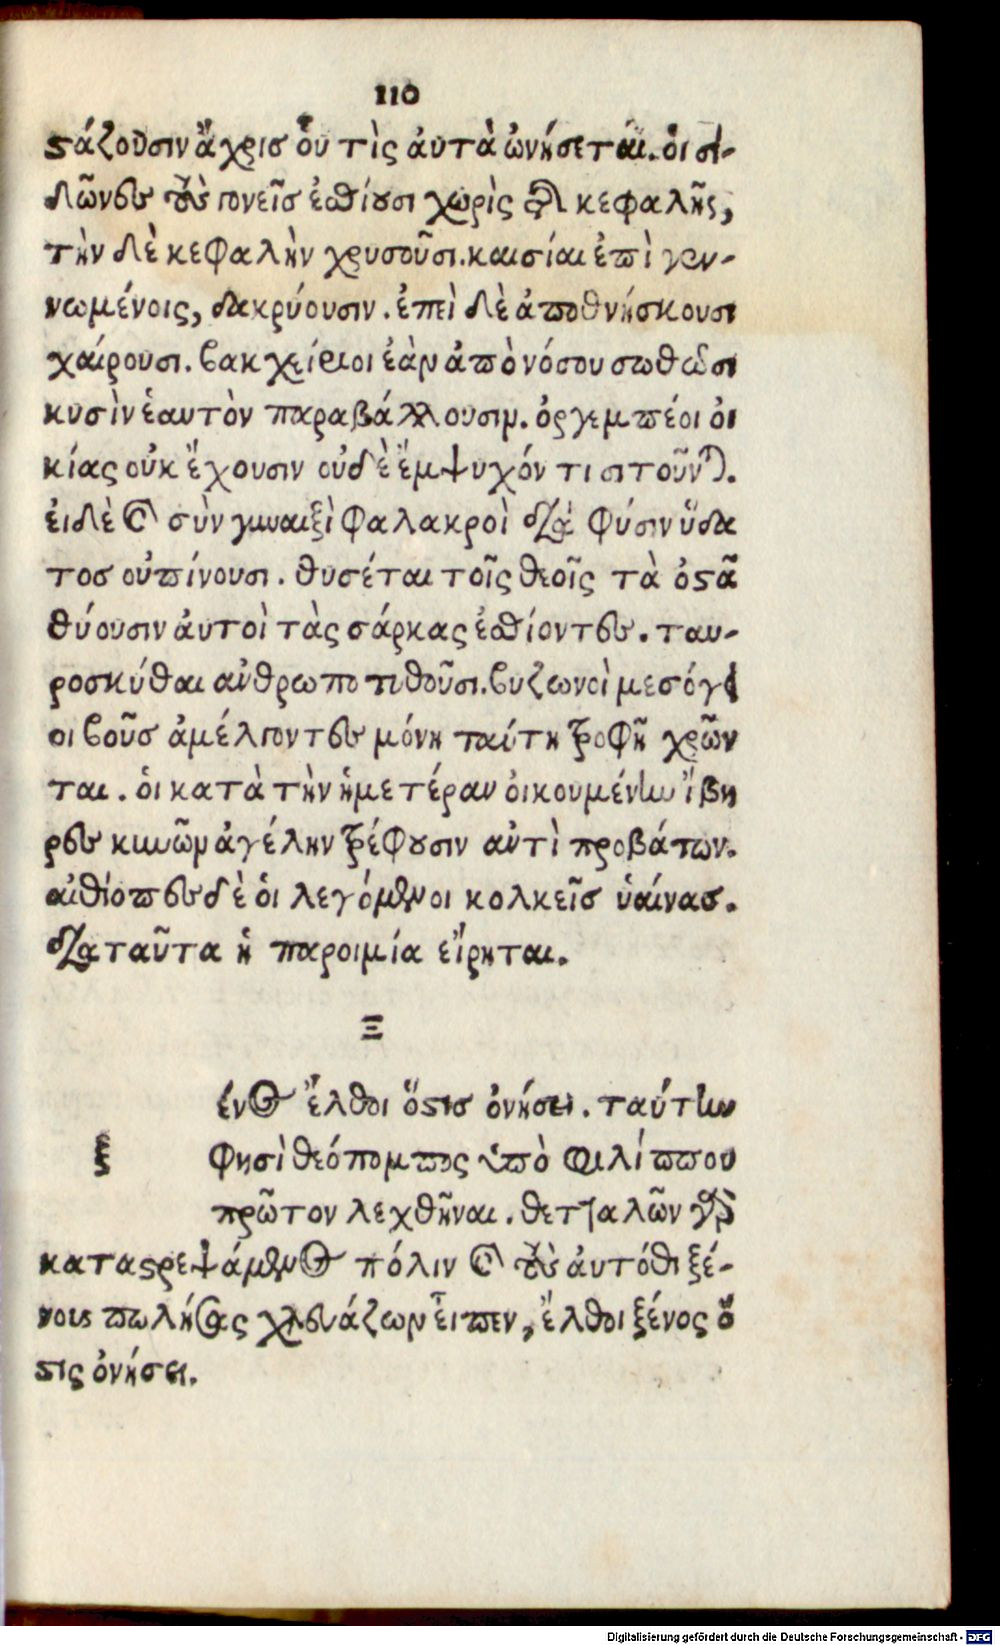 110
στάζουσιν ἄχρισ ὁῦ τὶς ἀυτὰ ὠνήσεται. ὁι σι-
δῶνες τοὺς γονεῖσ ἐσθίουσι χωρὶς τῆς κεφαλῆς,
τὴν δὲ κεφαλὴν χρυσοῦσι. καισίαι ἐπὶ γεν-
νωμένοις, δακρύουσιν. ἐπεὶ δὲ ἀποθνήσκουσι
χαίρουσι. βακχείριοι ἐὰν ἀπὸ νόσου σωθῶσι
κυσὶν ἑαυτὸν παραβάλλουσιν. ὀργεμπέοι οἰ
κίας οὐκ ἔχουσιν οὐδὲ ἔμψυχόν τι σιτοῦνται.
ἐισὶ δὲ καὶ σὺν γυναιξὶ φαλακροὶ διὰ φύσιν ὕδα
τοσ οὗ πίνουσι. θυσέται τοῖς θεοῖς τὰ ὀστᾶ
θύουσιν ἀυτοὶ τὰς σάρκας ἐσθίοντες. ταυ-
ροσκύθαι ἀνθρωποτιθοῦσι. βυζωνοὶ μεσόγει
οι βοῦσ ἀμέλγοντες μόνη ταύτη τροφῆ χρῶν
ται. ὁι κατὰ τὴν ἡμετέραν οἰκουμένην ἴβη
ρες κυνῶν ἀγέλην τρέφουσιν ἀντὶ προβάτων.
αἰθίοπες δὲ ὁι λεγόμενοι κολκεῖσ ὑαίνασ.
διὰ ταῦτα ἡ παροιμία εἴρηται.
Ξ
ένος ἔλθοι ὅστισ ὀνήσει. ταύτην
ξ φησὶ θεόπομπος ὑπὸ φιλίππου
πρῶτον λεχθῆναι. θετταλῶν γὰρ
καταστρεψάμενος πόλιν καὶ τοὺς ἀυτόθι ξέ-
νους πωλήσας χλευάζων εἶπεν, ἔλθοι ξένος ὅ
στις ὀνήσει.
Digitalisierung gefördert durch die Deutsche Forschungsgemeinschaft - DFG